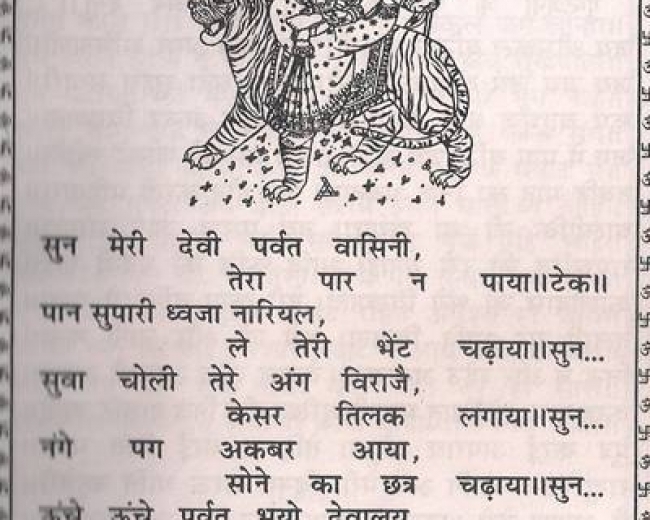 सुन मेरी देवी पर्वत वासिनी,
तेरा पार न पाया॥टेक॥
पान सुपारी ध्वजा नारियल,
ले तेरी भेंट चढ़ाया॥सुन...
सुवा चोली तेरे अंग विराजै,
केसर तिलक लगाया॥सुन...
नंगे पग अकबर आया,
सोने का छत्र चढ़ाया॥सुन...
ऊंचे ऊंचे पर्वत भयो देवालय